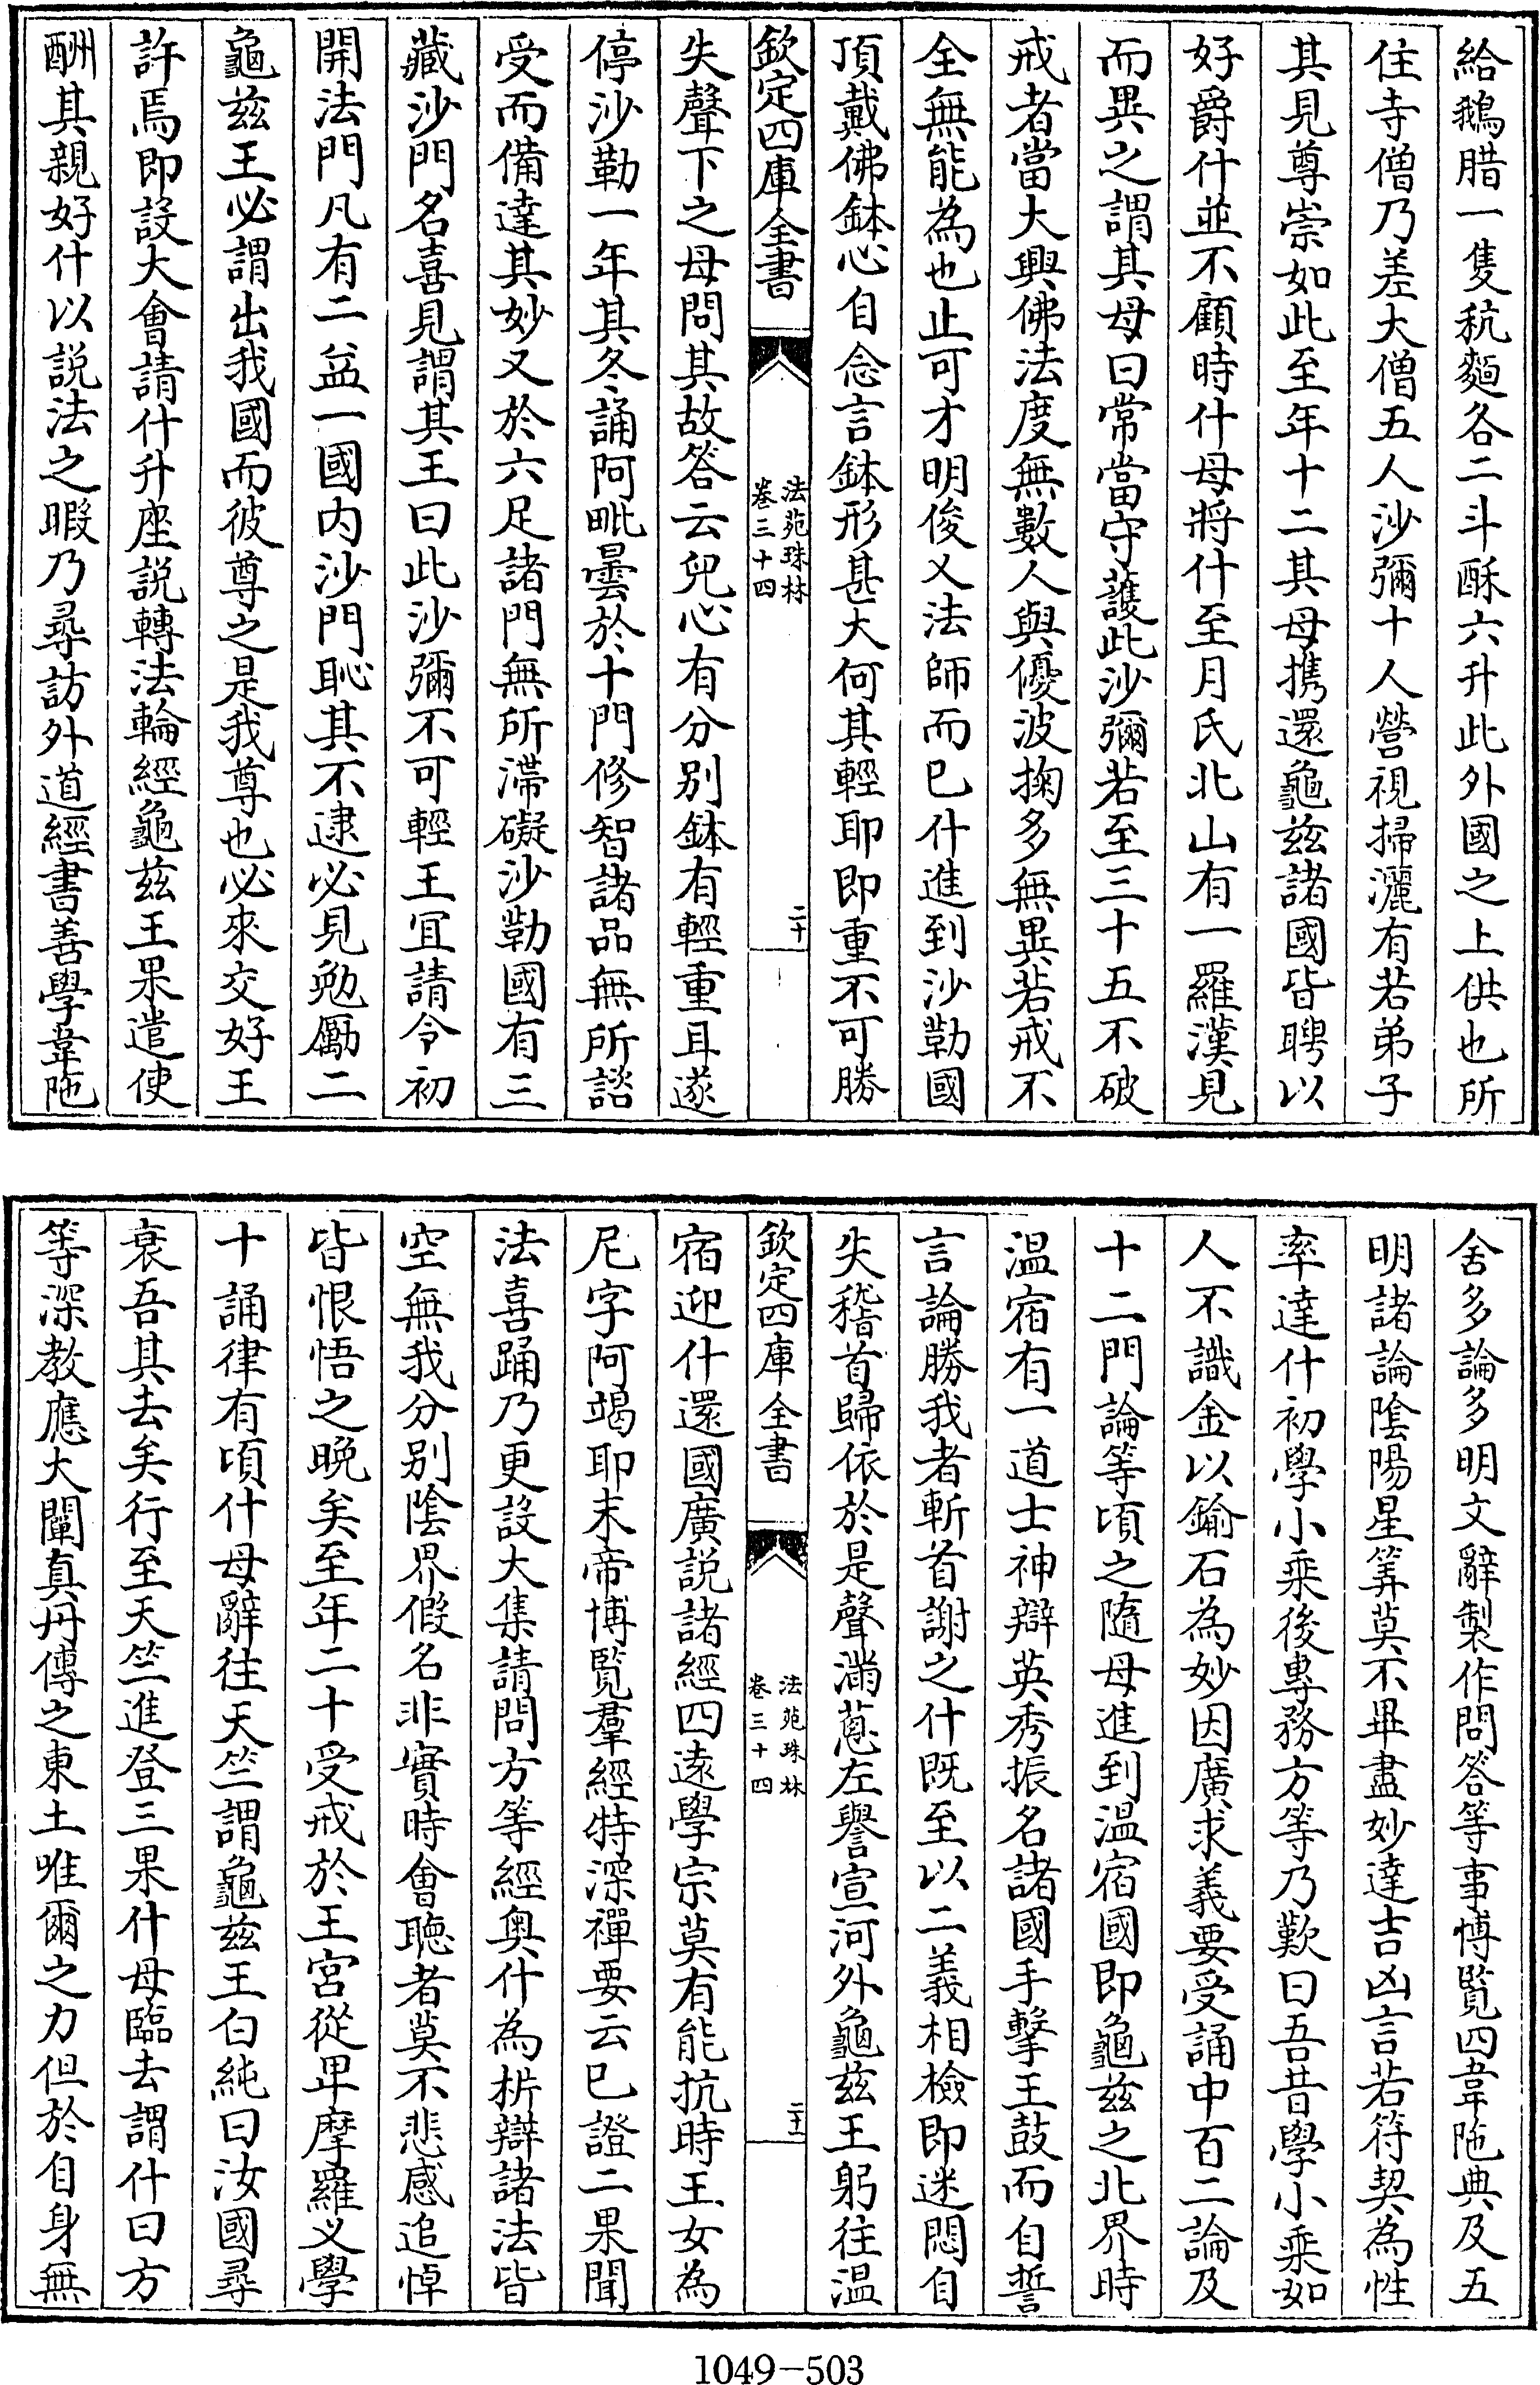 給鵝腊一隻秔麵各二斗酥六升此外國之上供也所
住寺僧乃差大僧五人沙彌十人營視掃灑有若弟子
其見尊崇如此至年十二其母携還龜兹諸國皆聘以
好爵什並不顧時什母將什至月氏北山有一羅漢見
而異之謂其母曰常當守護此沙彌若至三十五不破
戒者當大興佛法度無數人與優波掬多無異若戒不
全無能為也止可才明俊乂法師而已什進到沙勒國
頂戴佛鉢心自念言鉢形甚大何其輕耶即重不可勝
欽定四庫全書
法苑珠林
卷三十四
二十
失聲下之母問其故答云兒心有分别鉢有輕重耳遂
停沙勒一年其冬誦阿毗曇於十門修智諸品無所諮
受而備達其妙又於六足諸門無所滯礙沙勒國有三
藏沙門名喜見謂其王曰此沙彌不可輕王宜請令初
開法門凡有二益一國内沙門恥其不逮必見勉勵二
龜兹王必謂出我國而彼尊之是我尊也必來交好王
許焉即設大會請什升座說轉法輪經龜兹王果遣使
酬其親好什以說法之暇乃尋訪外道經書善學韋陁
舍多論多明文辭製作問答等事博覽四韋陁典及五
明諸論陰陽星筭莫不畢盡妙達吉凶言若符契為性
率達什初學小乘後專務方等乃歎曰吾昔學小乘如
人不識金以鍮石為妙因廣求義要受誦中百二論及
十二門論等頃之隨母進到温宿國即龜兹之北界時
温宿有一道士神辯英秀振名諸國手擊王鼓而自誓
言論勝我者斬首謝之什既至以二義相檢即迷悶自
失稽首歸依於是聲滿蔥左譽宣河外龜兹王躬往温
欽定四庫全書
法苑珠林
卷三十四
二十一
宿迎什還國廣說諸經四遠學宗莫有能抗時王女為
尼字阿竭耶末帝博覽羣經特深禪要云已證二果聞
法喜踊乃更設大集請問方等經奥什為析辯諸法皆
空無我分别陰界假名非實時會聽者莫不悲感追悼
皆恨悟之晚矣至年二十受戒於王宫從卑摩羅乂學
十誦律有頃什母辭往天竺謂龜兹王白純曰汝國尋
衰吾其去矣行至天竺進登三果什母臨去謂什曰方
等深教應大闡真丹傳之東土唯爾之力但於自身無
1049-503